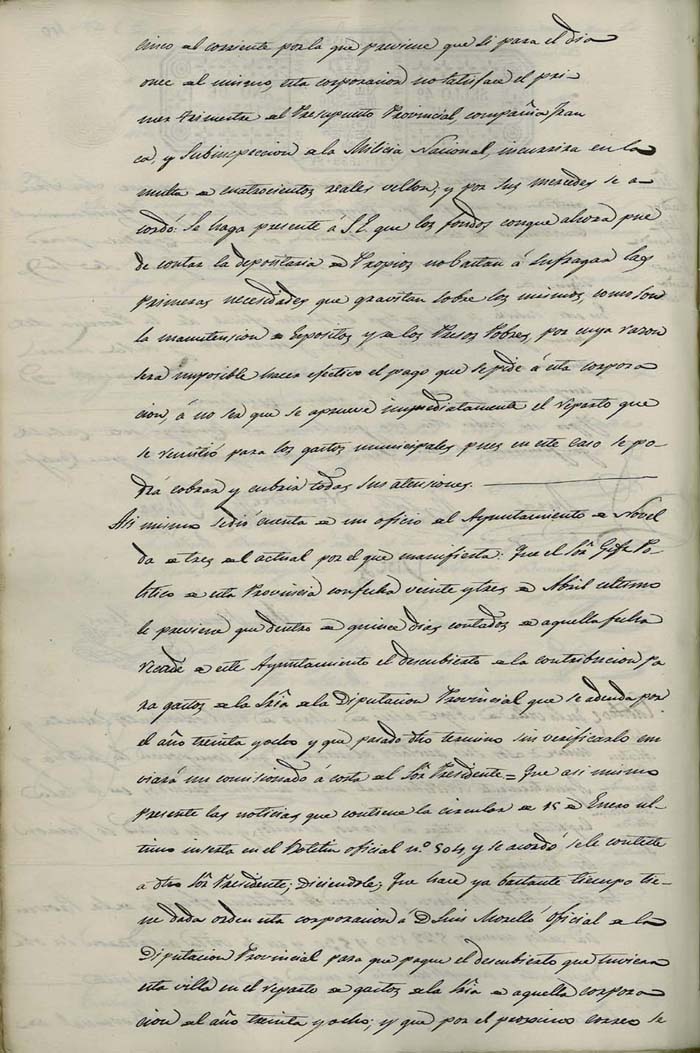 cinco del corriente por la que previene que si para el dia
once del mismo, esta corporacion no satisface el pri-
mer trimestre del Presupuesto Provincial, compañia fran
ca, y Subinspeccion de la Milicia Nacional, incurrirá en la
multa de cuatrocientos reales vellon; y por sus mercedes se a-
cordó: Se haga presente á S.E. que los fondos con que ahora pue
de contar la depositaria de Propios no bastan á sufragar las
primeras necesidades que gravitan sobre los mismos, como son
la manutension de Espositos, y de los Presos Pobres, por cuya razon
será imposible hacer efectivo el pago que se pide á esta corpora
cion, á no ser que se apruebe inmediatamente el reparto que
se remitió para los gastos municipales pues en este caso se po-
drá cobrar y cubrir todas sus atensiones.
Asi mismo se dió cuenta de un oficio del Ayuntamiento de Novel
da de tres del actual por el que manifiesta: Que el Sor. Gefe Po-
litico de esta Provincia con fecha veinte y tres de Abril ultimo
le previene que dentro de quince dias contados de aquella fecha
recaude de este Ayuntamiento el descubierto de la contribucion pa
ra gastos de la Sria. de la Diputacion Provincial que se adeuda por
el año treinta y ocho y que pasado dho termino sin verificarlo en
viará un comisionado á costa del Sor. Presidente = Que asi mismo
presente las noticias que contiene la circular de 15 de Enero ul-
timo inserta en el Boletin oficial n.º 504, y se acordó se le conteste
a dho Sor. Presidente; diciendole; Que hace ya bastante tiempo tie-
ne dada orden esta corporacion á D. Luis Morelló oficial de la
Diputacion Provincial para que pague el descubierto que tuviera
esta villa en el reparto de gastos de la Sria. de aquella corpora
cion del año treinta y ocho; y que por el procsimo correo se